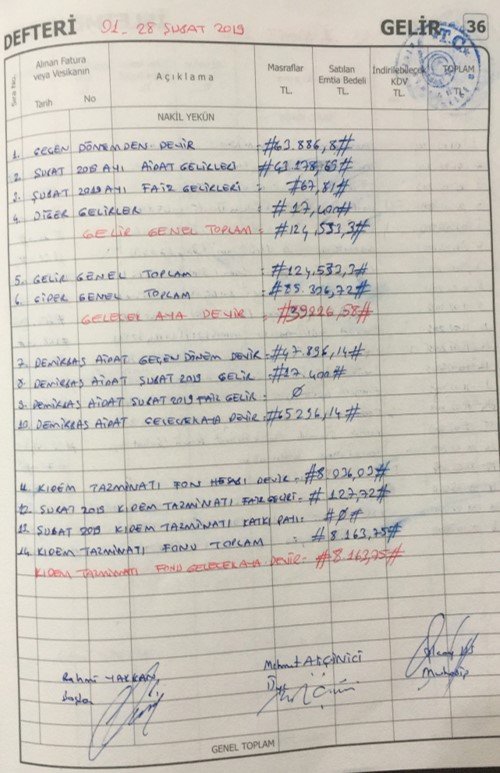 DEFTERİ 01-28 ŞUBAT 2019 GELİR 36
Sıra No. Alınan Fatura veya Vesikanın Açıklama Masraflar TL. Satılan Emtia Bedeli TL. İndirilebilecek KDV TL. TOPLAM TL.
Tarih No
NAKİL YEKÜN
1. GEÇEN DÖNEMDEN DEVİR : #63.886,8#
2. ŞUBAT 2019 AYI AİDAT GELİRLERİ : #43.178,69#
3. ŞUBAT 2019 AYI FAİZ GELİRLERİ : #67,81#
4. DİĞER GELİRLER : #17,400#
GELİR GENEL TOPLAM : #124,533,3#
5. GELİR GENEL TOPLAM : #124.533,3#
6. GİDER GENEL TOPLAM : #85.306,72#
GELECEK AYA DEVİR : #39226,58#
7. DEMİRBAŞ AİDAT GEÇEN DÖNEM DEVİR : #47.896,14#
8. DEMİRBAŞ AİDAT ŞUBAT 2019 GELİR : #17.400#
9. DEMİRBAŞ AİDAT ŞUBAT 2019 FAİZ GELİR : Ø
10. DEMİRBAŞ AİDAT GELECEK AYA DEVİR : #65296,14#
11. KIDEM TAZMİNATI FON HESABI DEVİR : #8.036,03#
12. ŞUBAT 2019 KIDEM TAZMİNATI FAİZ GELİRİ : #127,72#
13. ŞUBAT 2019 KIDEM TAZMİNATI KATKI PAYI : #Ø#
14. KIDEM TAZMİNATI FONU TOPLAM : #8.163,75#
KIDEM TAZMİNATI FONU GELECEK AYA DEVİR : #8.163,75#
Mehmet AKÇİNİCİ
Rahmi YAKKAN
Başkan
Muhasip
GENEL TOPLAM